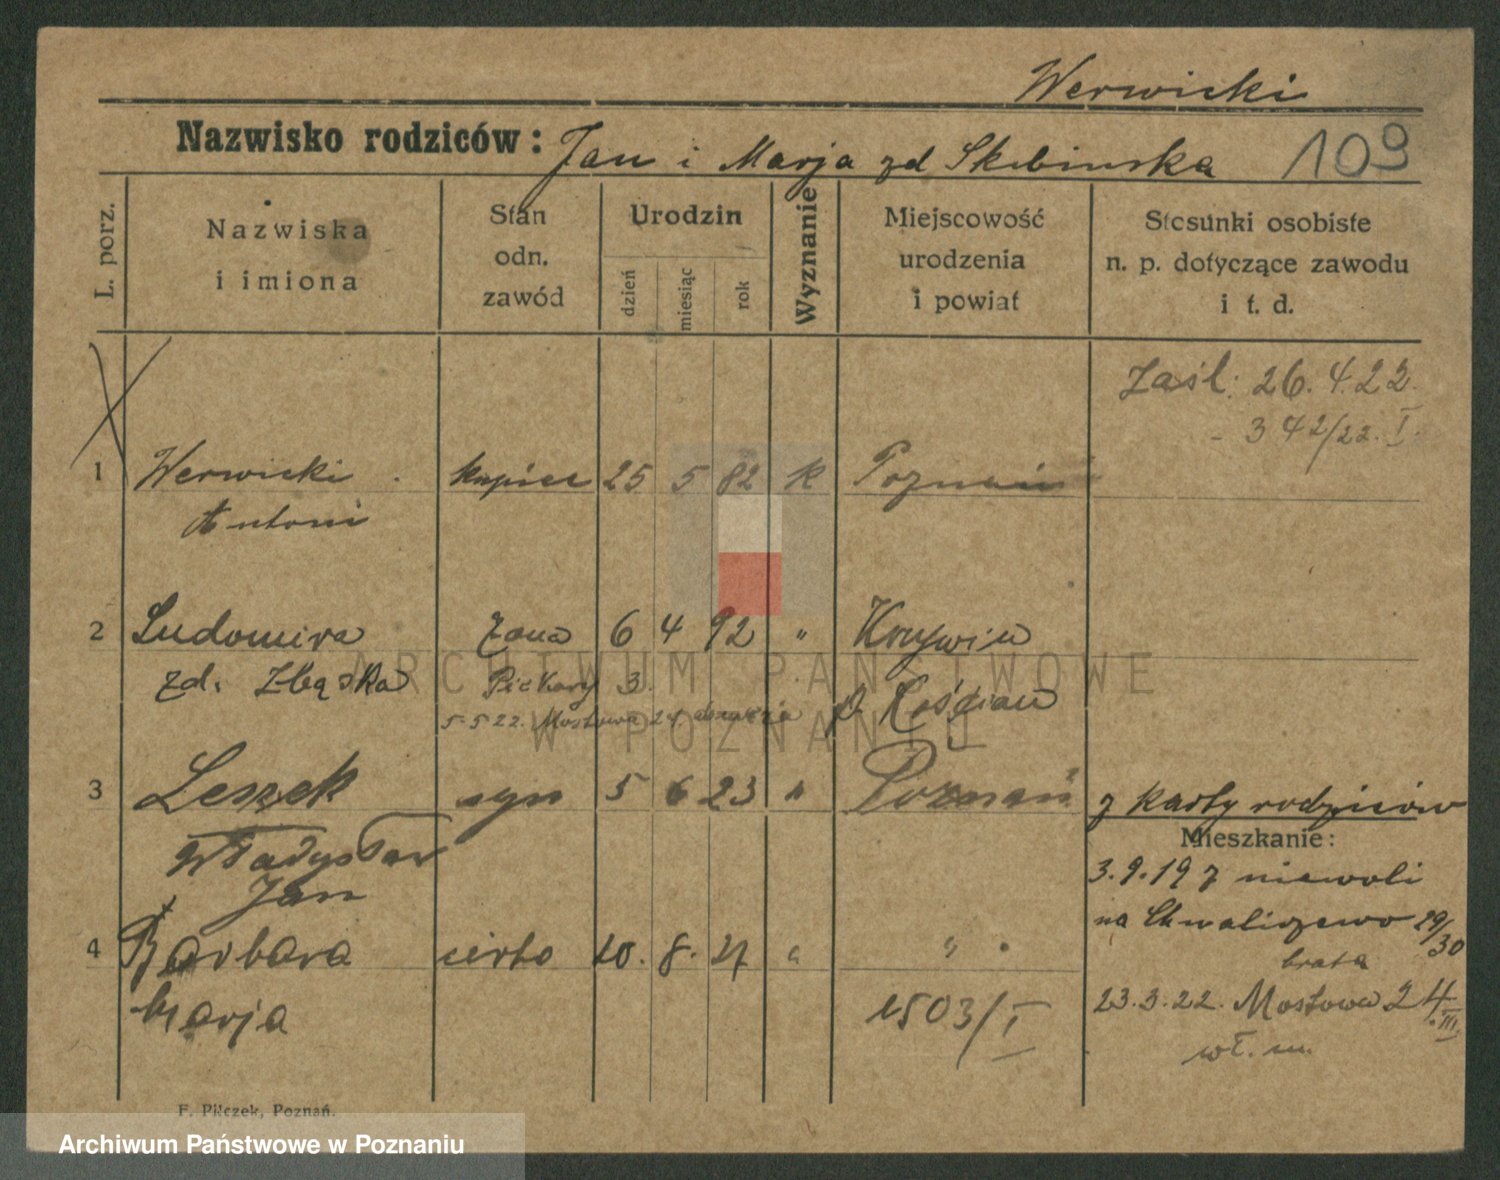 Werwicki
Nazwisko rodziców: Jan i Marja zd Skibinska 109
L. porz.
Nazwiska i imiona
Stan odn. zawód
Urodzin
dzień
miesiąc
rok
Wyznanie
Miejscowość urodzenia i powiat
Stosunki osobiste n. p. dotyczące zawodu i t. d.
Zaśl. 26.4.22.
- 342/22. I.
1 Werwicki kupiec 25 5 82 k Poznań
Antoni
2 Ludomira żona 6 4 92 " Krzywin
zd. Zbąska Piekary 3. p. Kościan
5.5.22. Mostowa 24
3 Leszek syn 5 6 23 " Poznań z karty rodziców
Władysław
Jan
Mieszkanie:
3.9.19 z niewoli
na Chwaliszewo 29/30
brata
4 Barbara 10. 8. 27 " "
Marja
1503/I
23.3.22. Mostowa 24 III.
wł. m.
F. Pilczek, Poznań.
ARCHIWUM PAŃSTWOWE
W POZNANIU
Archiwum Państwowe w Poznaniu